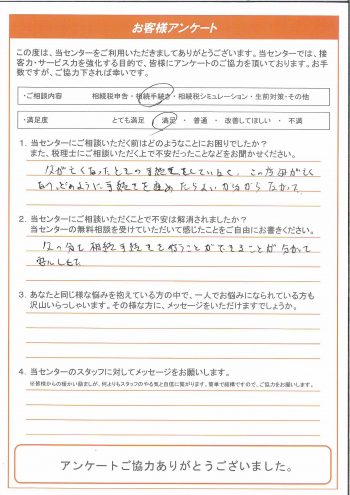 お客様アンケート
この度は、当センターをご利用いただきましてありがとうございます。当センターでは、接
客力・サービス力を強化する目的で、皆様にアンケートのご協力を頂いております。お手
数ですが、ご協力下されば幸いです。
・ご相談内容 相続税申告・相続手続き・相続税シミュレーション・生前対策・その他
・満足度 とても満足 ・ 満足 ・ 普通 ・ 改善して欲しい ・ 不満
1. 当センターにご相談いただく前はどのようなことにお困りでしたか?
また、税理士にご相談いただく上で不安だったことなどをお聞かせください。
父が亡くなったときの手続をしていなく、この度母が亡く
なり、どのように手続きを進めたらよいか分からなかった。
2. 当センターにご相談いただくことで不安は解消されましたか?
当センターの無料相談を受けていただいて感じたことをご自由にお書きください。
父の分も相続手続きを行うことができることが分かって
安心した。
3. あなたと同じ様な悩みを抱えている方の中で、一人でお悩みになられている方も
沢山いらっしゃいます。その様な方に、メッセージをいただけますでしょうか。
4. 当センターのスタッフに対してメッセージをお願いします。
※皆様からの暖かい励ましが、何よりもスタッフのやる気と自信に繋がります。簡単で結構ですので、ご協力をお願いします。
アンケートご協力ありがとうございました。